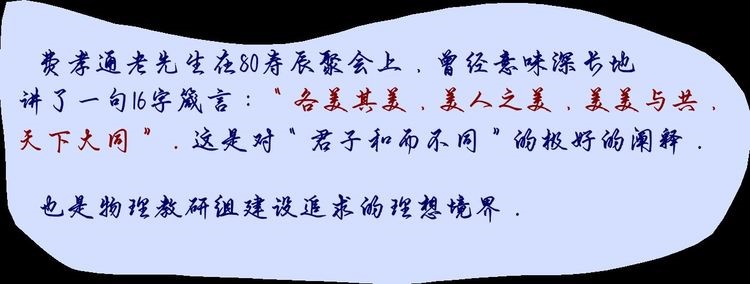 费孝通老先生在80寿辰聚会上．曾经意味深长地
讲了一句16字箴言："各美其美．美人之美．美美与共．
天下大同"．这是对"君子和而不同"的极好的阐释．
也是物理教研组建设追求的理想境界．